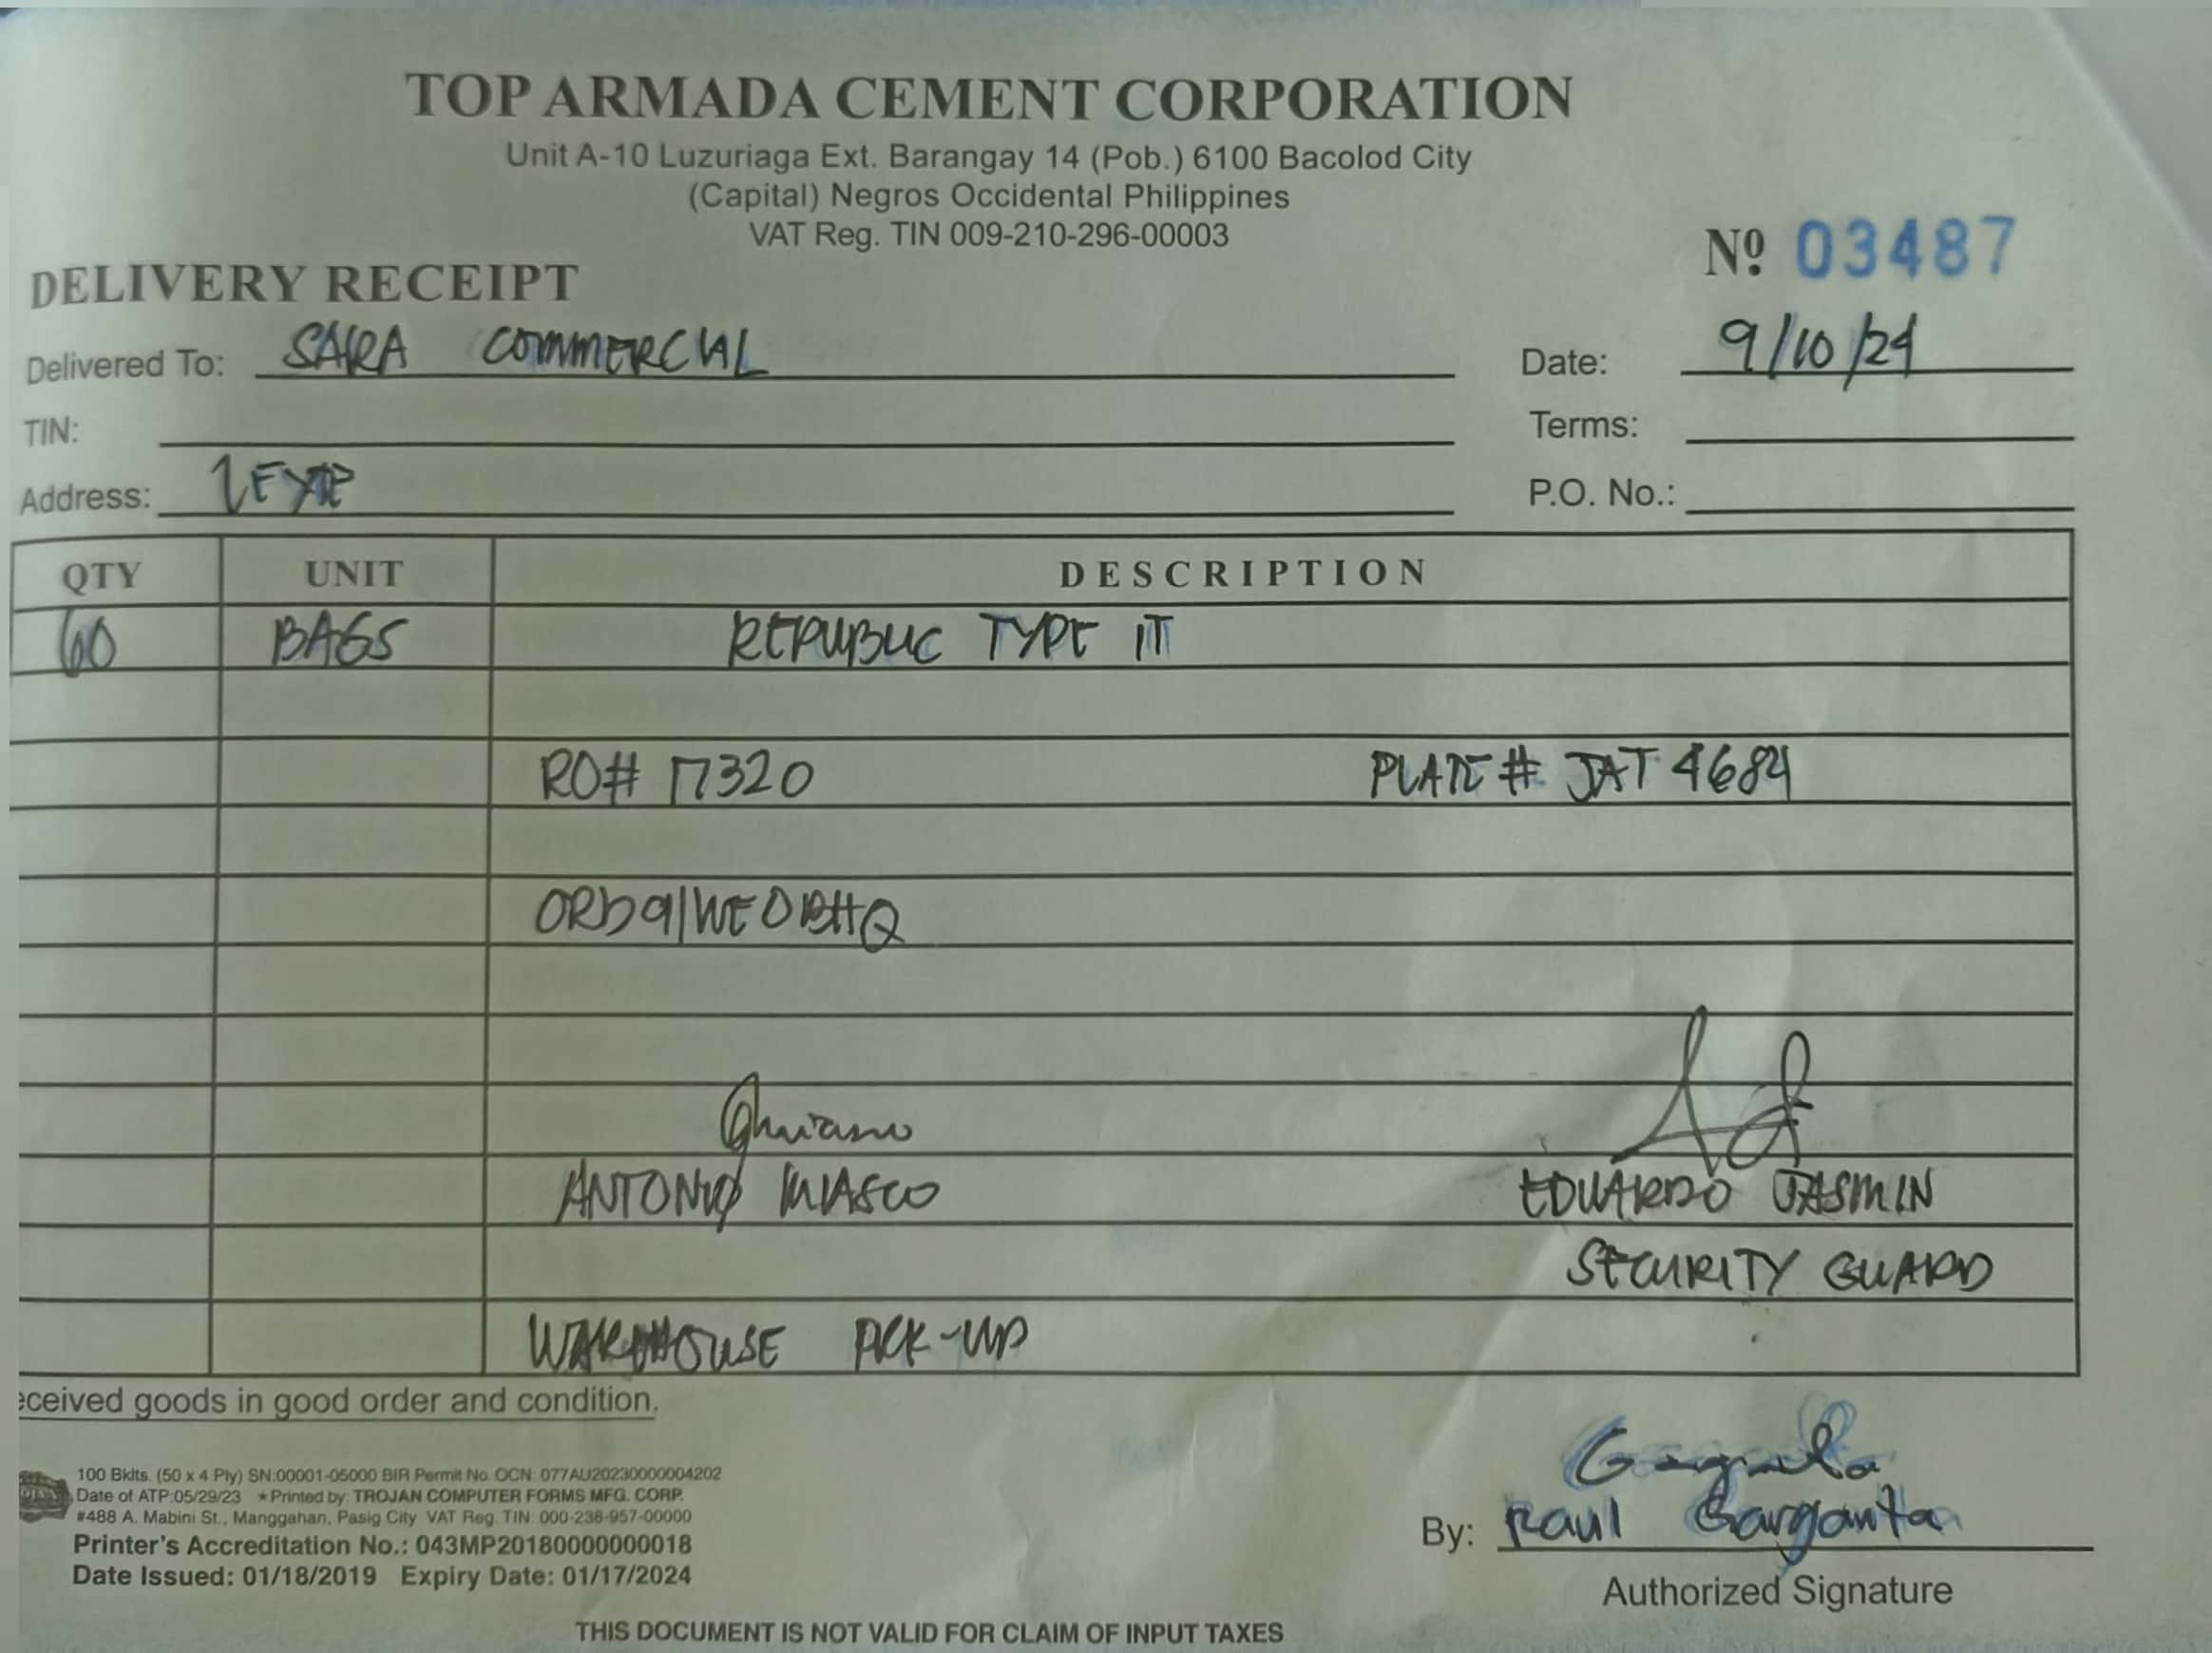 TOP ARMADA CEMENT CORPORATION
Unit A-10 Luzuriaga Ext. Barangay 14 (Pob.) 6100 Bacolod City
(Capital) Negros Occidental Philippines
VAT Reg. TIN 009-210-296-00003
Nº 03487
DELIVERY RECEIPT
Delivered To: SARA COMMERCIAL Date: 9/10/24
TIN: Terms:
Address: LEYTE P.O. No.:
QTY UNIT DESCRIPTION
60 BAGS REPUBLIC TYPE IT
RO# 17320 PLATE # JAT 4684
ANTONIO EDUARDO JASMIN
SECURITY GUARD
WAREHOUSE PICK-UP
eceived goods in good order and condition.
100 Bklts. (50 x 4 Ply) SN:00001-05000 BIR Permit No. OCN: 077AU20230000004202
Date of ATP:05/29/23 ★Printed by: TROJAN COMPUTER FORMS MFG. CORP.
#488 A. Mabini St., Manggahan, Pasig City VAT Reg. TIN: 000-238-957-00000
Printer's Accreditation No.: 043MP20180000000018
Date Issued: 01/18/2019 Expiry Date: 01/17/2024
By: Raul Garganta
Authorized Signature
THIS DOCUMENT IS NOT VALID FOR CLAIM OF INPUT TAXES